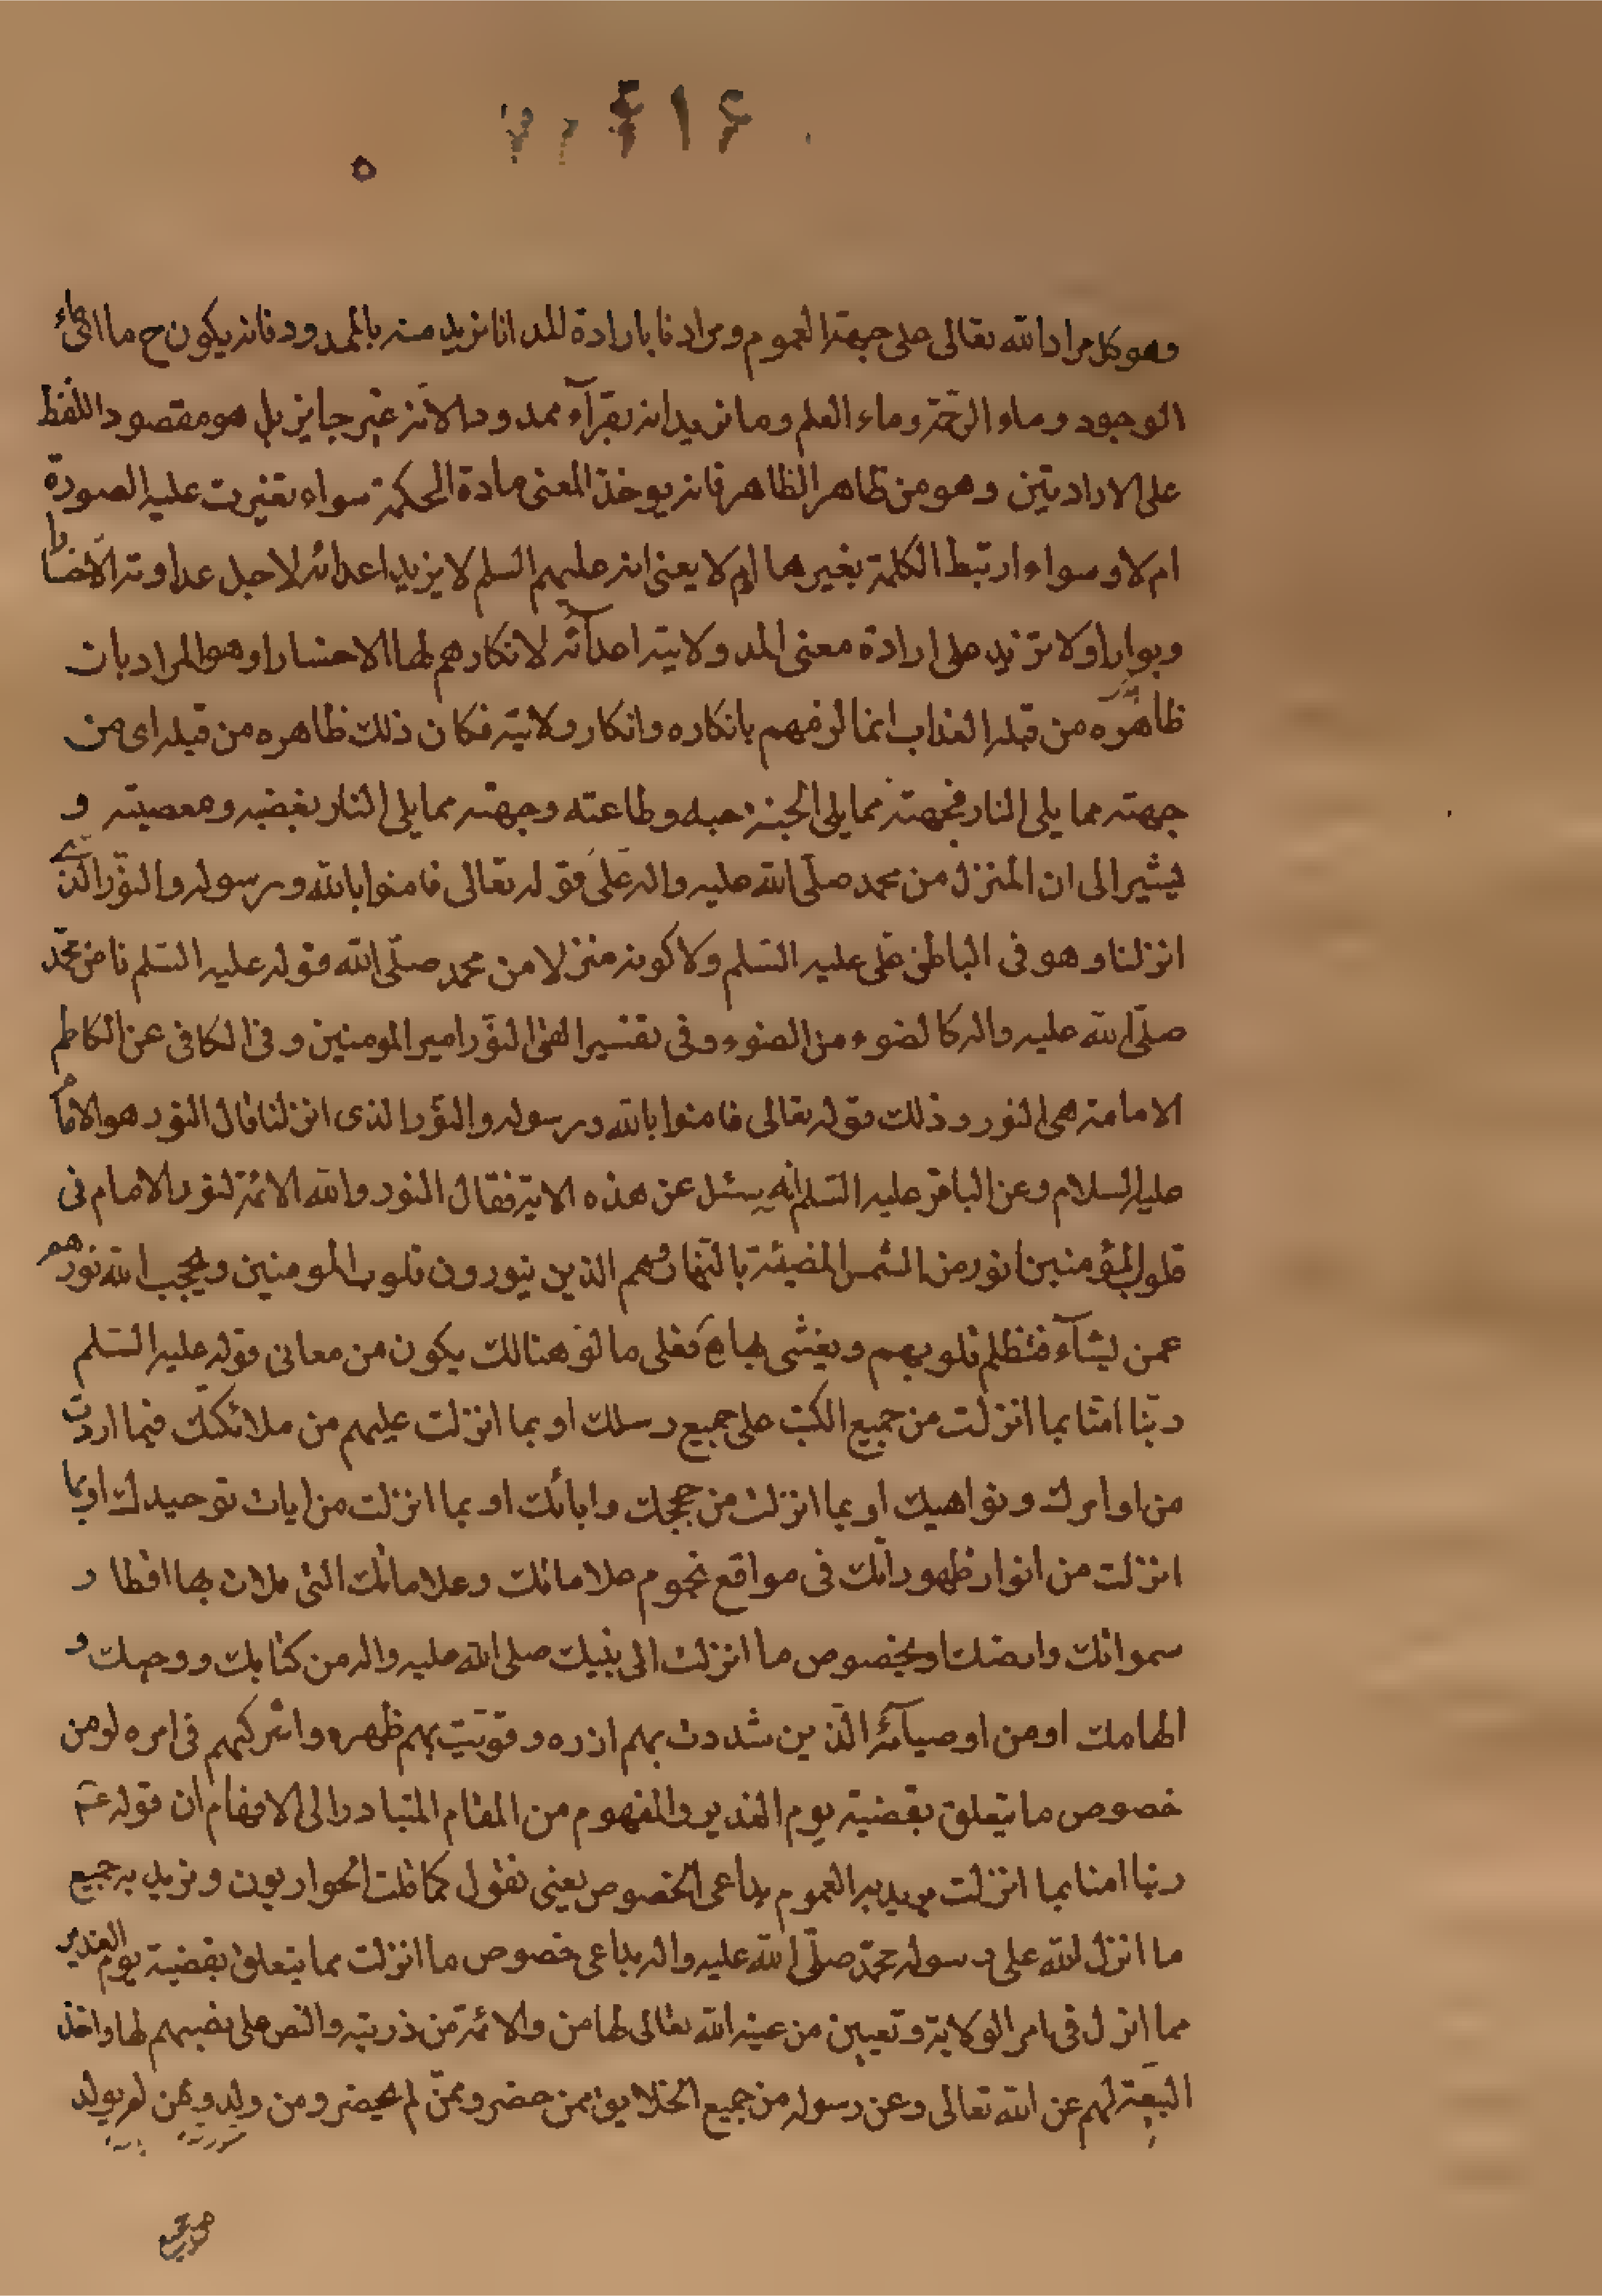 وهو كل مراد الله تعالى على جهة العموم ومرادنا بارادة المد انا نريد منه بالممدود فانه يكون ح ما اى ماء
الوجود وماء الرحمة وماء العلم وما نريد انه يقرآء ممدودا لانه غير جايز بل هو مقصود اللفظ
على الارادتين وهو من ظاهر الظاهر فانه يوخذ المعنى مادة الحكمة سواء تغيرت عليه الصورة
ام لا وسواء ارتبط الكلمة بغيرها ام لا يعنى انه عليهم السلم لا يزيد اعدائه لاجل عداوته الا خسارا
وبوارا ولا تزيد على ارادة معنى المد ولايته اعدآئه لانكارهم لها الا خسارا وهو المراد بان
ظاهره من قبله العذاب انما لزمهم بانكاره وانكار ولايته فكان ذلك ظاهره من قبله اى من
جهته مما يلى النار فجهته مما يلى الجنة حبه وطاعته وجهته مما يلى النار بغضه ومعصيته و
يشير الى ان المنزل من محمد صلى الله عليه واله على قوله تعالى فامنوا بالله ورسوله والنور الذى
انزلنا وهو فى الباطن على عليه السلم ولا كونه منزلا من محمد صلى الله قوله عليه السلم انا من محمد
صلى الله عليه واله كالضوء من الضوء وفى تفسير القمى النور امير المومنين وفى الكافى عن الكاظم
الامامة هى النور وذلك قوله تعالى فامنوا بالله ورسوله والنور الذى انزلنا قال النور هو الامام
عليه السلام وعن الباقر عليه السلم انه سئل عن هذه الاية فقال النور والله الائمة لنور الامام فى
قلوب المؤمنين انور من الشمس المضيئة بالنهار وهم الذين ينورون قلوب المومنين ويحجب الله نورهم
عمن يشآء فتظلم قلوبهم ويغشى بها فعلى ما لو هنالك يكون من معانى قوله عليه السلم
ربنا امنا بما انزلت من جميع الكتب على جميع رسلك او بما انزلت عليهم من ملائكتك فيما اردت
من اوامرك ونواهيك او بما انزلت من حججك واياتك او بما انزلت من ايات توحيدك او بما
انزلت من انوار ظهوراتك فى مواقع نجوم علاماتك وعلاماتك التى ملات بها اقطار
سمواتك وارضك او بخصوص ما انزلت الى نبيك صلى الله عليه واله من كتابك ووحيك و
الهامك او من اوصيآئه الذين شددت بهم ازره وقويت بهم ظهره واشركهم فى امره او من
خصوص ما يتعلق بقضية يوم الغدير والمفهوم من المقام المتبادر الى الافهام ان قوله ع
ربنا امنا بما انزلت يريد به العموم بداعى الخصوص يعنى نقول كما قالت الحواريون ونريد به جميع
ما انزل الله على رسوله محمد صلى الله عليه واله بداعى خصوص ما انزلت مما يتعلق بقضية يوم الغدير
مما انزل فى امر الولاية وتعيين من عينه الله تعالى لها من والائمة من ذريته والنص على نصبهم لها واخذ
البيعة لهم عن الله تعالى وعن رسوله من جميع الخلايق ممن حضر وممن لم يحضر ومن ولد وممن لم يولد